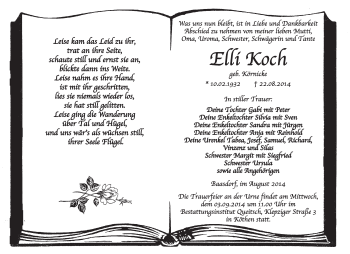 Leise kam das Leid zu ihr,
trat an ihre Seite,
schaute still und ernst sie an,
blickte dann ins Weite.
Leise nahm es ihre Hand,
ist mit ihr geschritten,
lies sie niemals wieder los,
sie hat still gelitten.
Leise ging die Wanderung
über Tal und Hügel,
und uns wär's als wüchsen still,
ihrer Seele Flügel.
Was uns nun bleibt, ist in Liebe und Dankbarkeit
Abschied zu nehmen von meiner lieben Mutti,
Oma, Uroma, Schwester, Schwägerin und Tante
Elli Koch
geb. Körnicke
* 10.02.1932 † 22.08.2014
In stiller Trauer:
Deine Tochter Gabi mit Peter
Deine Enkeltochter Silvia mit Sven
Deine Enkeltochter Sandra mit Jürgen
Deine Enkeltochter Anja mit Reinhold
Deine Urenkel Tabea, Josef, Samuel, Richard,
Vinzenz und Silas
Schwester Margit mit Siegfried
Schwester Ursula
sowie alle Angehörigen
Baasdorf, im August 2014
Die Trauerfeier an der Urne findet am Mittwoch,
dem 03.09.2014 um 11.00 Uhr im
Bestattungsinstitut Queitsch, Klepziger Straße 3
in Köthen statt.